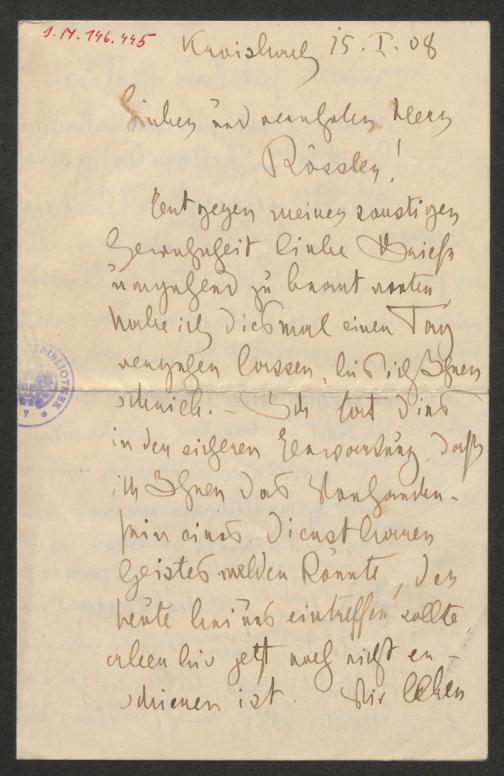 J.N. 146.445
15.I.08
Lieber und verehrter Herr
Rössler!
Entgegen meiner sonstigen
Gewohnheit liebe Briefe
umgehend zu beantworten
habe ich diesmal einen Tag
vergehen lassen, bis ich Ihnen
schrieb. – Ich tat dies
in der sicheren Erwartung, daß
ich Ihnen das Vorhanden-
sein eines dienstbaren
Geistes melden könnte, der
heute bei uns eintreffen sollte
aber bis jetzt noch nicht er-
schienen ist. Wir leben
BIBLIOTHEK